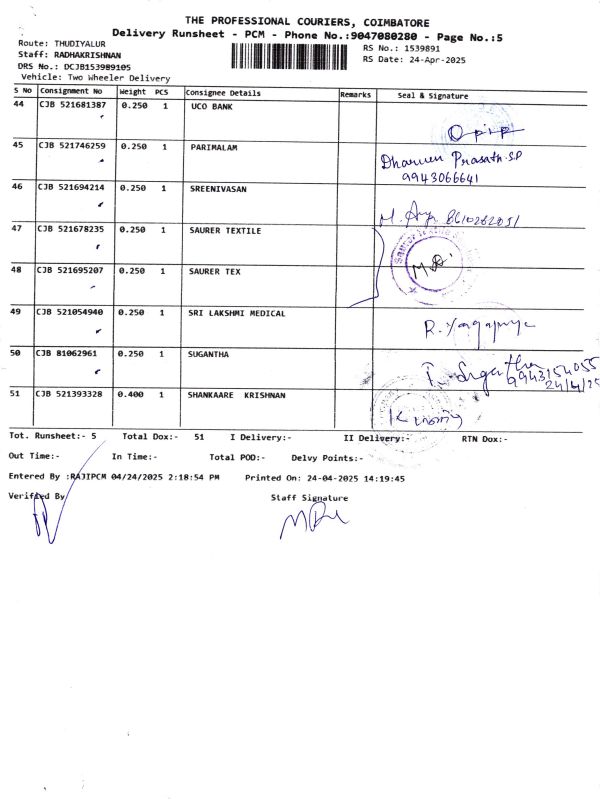 THE PROFESSIONAL COURIERS, COIMBATORE
Delivery Runsheet - PCM - Phone No.:9047080280 - Page No.:5
Route: THUDIYALUR
RS No.: 1539891
Staff: RADHAKRISHNAN
RS Date: 24-Apr-2025
DRS No.: DCJB153989105
Vehicle: Two Wheeler Delivery
S No Consignment No Weight PCS Consignee Details Remarks Seal & Signature
44 CJB 521681387 0.250 1 UCO BANK
45 CJB 521746259 0.250 1 PARIMALAM Dharun Prasath.S.P
9943066641
46 CJB 521694214 0.250 1 SREENIVASAN
47 CJB 521678235 0.250 1 SAURER TEXTILE
48 CJB 521695207 0.250 1 SAURER TEX
49 CJB 521054940 0.250 1 SRI LAKSHMI MEDICAL
50 CJB 81062961 0.250 1 SUGANTHA
9943154055
24/4/25
51 CJB 521393328 0.400 1 SHANKAARE KRISHNAN
Tot. Runsheet:- 5 Total Dox:- 51 I Delivery:- II Delivery:- RTN Dox:-
Out Time:- In Time:- Total POD:- Delvy Points:-
Entered By :RAJIPCM 04/24/2025 2:18:54 PM Printed On: 24-04-2025 14:19:45
Verified By Staff Signature